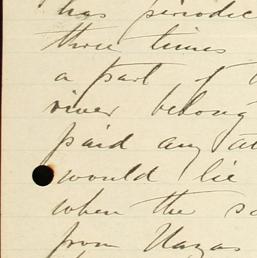 has periodic
three times
a part of
river belong
paid any at
would lie
when the so
from Nazas